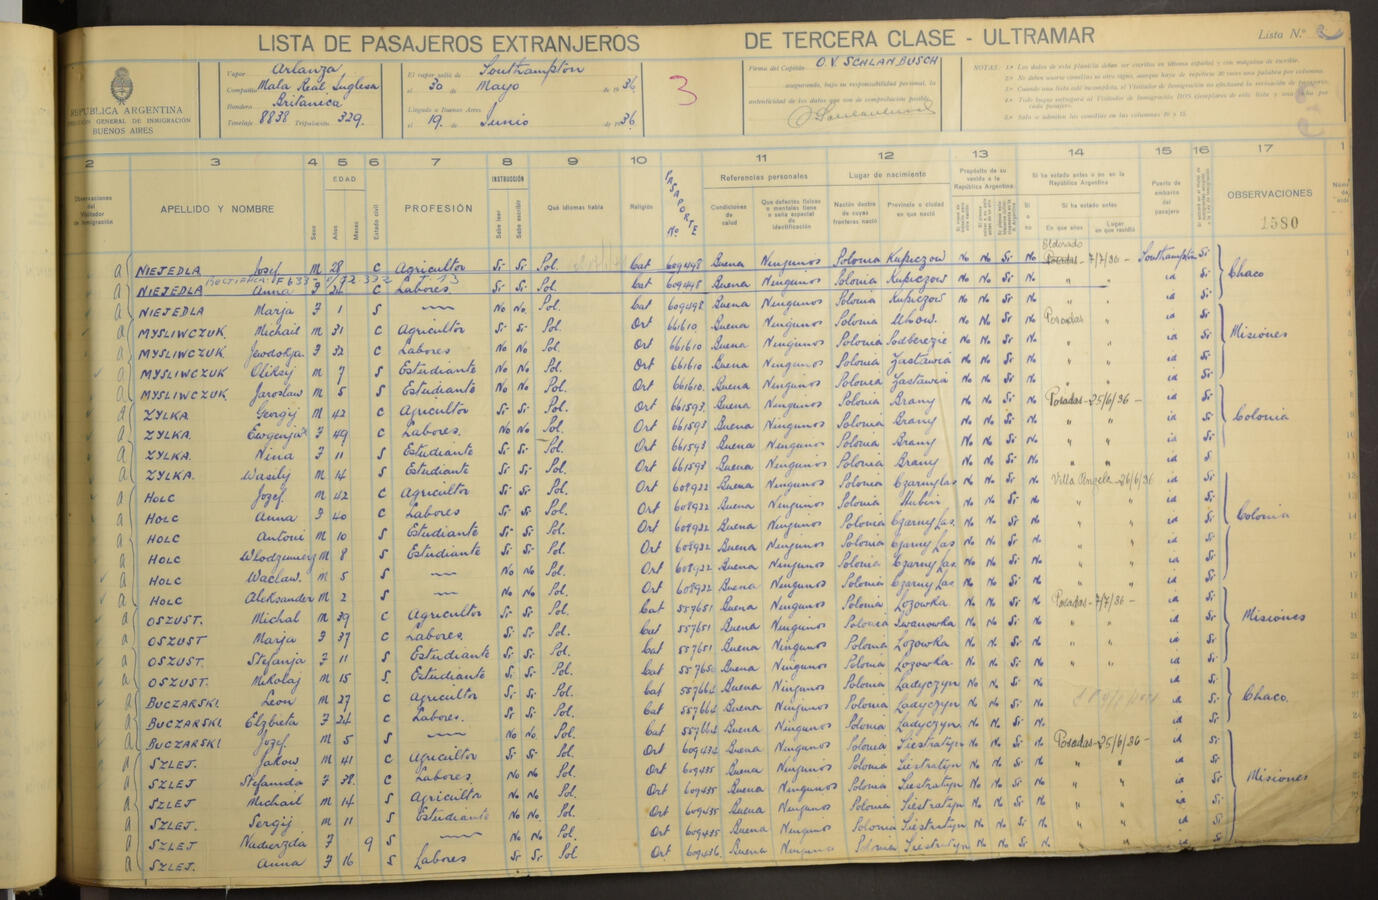 LISTA DE PASAJEROS EXTRANJEROS DE TERCERA CLASE - ULTRAMAR
Lista N.º
REPUBLICA ARGENTINA
GENERAL DE INMIGRACIÓN
BUENOS AIRES
Vapor Arlanza
Compañía Mala Real Inglesa
Bandera Britanica
Tonelaje 8838 Tripulación 329.
El vapor salió de Southampton
el 30 de Mayo de 1936
Llegado a Buenos Aires
el 19. de Junio de 1936.
3
Firma del Capitán O.V. SCHLANBUSCH
asegurando, bajo su responsabilidad personal, la
autenticidad de los datos que son de comprobación posible.
NOTAS:
2 3 4 5 6 7 8 9 10 11 12 13 14 15 16 17
APELLIDO Y NOMBRE
Sexo
EDAD
Años
Meses
Estado civil
PROFESIÓN
INSTRUCCIÓN
Sabe leer
Sabe escribir
Qué idiomas habla
Religión
PASAPORTE Nº
Referencias personales
Condiciones de salud
Que defectos físicos o mentales tiene o seña especial de identificación
Lugar de nacimiento
Nación dentro de cuyas fronteras nació
Provincia o ciudad en que nació
Propósito de su venida a la República Argentina
Si ha estado antes o no en la República Argentina
Si o no
Si ha estado antes
En que años
Lugar en que residió
Puerto de embarco del pasajero
OBSERVACIONES
1580
Eldorado
NIEJEDLA Josef M 28 C Agricultor Si Si Pol. Cat 609498 Buena Ningunos Polonia Kupiczow No No Si No Posadas - 7/7/36 - Southampton Si Chaco
NIEJEDLA Anna F 24 C Labores Si Si Pol. Cat 609498 Buena Ningunos Polonia Kupiczow No No Si No " " id Si
NIEJEDLA Marja F 1 S No No Pol. Cat 609498 Buena Ningunos Polonia Kupiczow No No Si No " " id Si
MYSLIWCZUK Michail M 31 C Agricultor Si Si Pol. Ort 661610 Buena Ningunos Polonia No No Si No Posadas " id Si Misiones
MYSLIWCZUK F 32 C Labores No No Pol Ort 661610 Buena Ningunos Polonia Podberezie No No Si No " " id Si
MYSLIWCZUK Oliksij M 7 S Estudiante No No Pol. Ort 661610 Buena Ningunos Polonia Zastawia No No Si No " " id Si
MYSLIWCZUK Jaroslaw M 5 S Estudiante No No Pol. Ort 661610. Buena Ningunos Polonia Zastawia No No Si No " " id Si
ZYLKA Georgij M 42 C Agricultor Si Si Pol. Ort 661593. Buena Ningunos Polonia Brany No No Si No Posadas - 25/6/36 - id Si Colonia
ZYLKA. Ewgenja F 49 C Labores. No No Pol. Ort 661593 Buena Ningunos Polonia Brany No No Si No " " id Si
ZYLKA. Nina F 11 S Estudiante Si Si Pol. Ort 661593 Buena Ningunos Polonia Brany No No Si No " " id Si
ZYLKA. Wasilij M 14 S Estudiante Si Si Pol. Ort 661593 Buena Ningunos Polonia Brany No No Si No " " id Si
HOLC Jozef M 42 C Agricultor Si Si Pol. Ort 608922 Buena Ningunos Polonia Czarny Las No No Si No Villa Angela - 26/6/36 id Si Colonia
HOLC Anna F 40 C Labores Si Si Pol. Ort 608922 Buena Ningunos Polonia Hubin No No Si No " " id Si
HOLC Antoni M 10 S Estudiante Si Si Pol. Ort 608922 Buena Ningunos Polonia Czarny Las. No No Si No " " id Si
HOLC Wlodzimierz M 8 S Estudiante Si Si Pol. Ort 608922 Buena Ningunos Polonia Czarny Las No No Si No " " id Si
HOLC Waclaw. M 5 S No No Pol. Ort 608922 Buena Ningunos Polonia Czarny Las. No No Si No " " id Si
HOLC Aleksander M 2 S No No Pol. Ort 608922 Buena Ningunos Polonia Czarny Las No No Si No " " id Si
OSZUST. Michal M 39 C Agricultor Si Si Pol. Cat 557651 Buena Ningunos Polonia Lozowka No No Si No Posadas - 7/7/36 - id Si Misiones
OSZUST Marja F 37 C Labores. Si Si Pol. Cat 557651 Buena Ningunos Polonia Iwanowka No No Si No " " id Si
OSZUST. Stefanja F 11 S Estudiante Si Si Pol. Cat 557651 Buena Ningunos Polonia Lozowka No No Si No " " id Si
OSZUST. Mikolaj M 15 S. Estudiante Si Si Pol. Cat Buena Ningunos Polonia Lozowka No No Si No " " id Si
BUCZARSKI Leon M 27 C Agricultor Si Si Pol. Cat 557664 Buena Ningunos Polonia Ladyczyn No No Si No id Si Chaco
BUCZARSKI Elzbieta F 24 C Labores. Si Si Pol. Cat 557664 Buena Ningunos Polonia Ladyczyn No No Si No id Si
BUCZARSKI Jozef M 5 S No No Pol. Cat 557664 Buena Ningunos Polonia Ladyczyn. No No Si No id Si
SZLEJ. Jakow M 41 C Agricultor Si Si Pol. Ort Buena Ningunos Polonia Siestratyn No No Si No Posadas - 25/6/36 - id Si Misiones
SZLEJ Stefanida F 38. C Labores. No No Pol. Ort 609435 Buena Ningunos Polonia Siestratyn No No Si No " " id Si
SZLEJ Michail M 14 S Agricultor No No Pol. Ort 609435 Buena Ningunos Polonia Siestratyn No No Si No " " id Si
SZLEJ. Sergij M 11 S Estudiante No No. Pol. Ort 609435 Buena Ningunos Polonia Siestratyn No No Si No " " id Si
SZLEJ Nadierzita F 9 S No No Pol. Ort 609435 Buena Ningunos Polonia Siestratyn No No Si No " " id Si
SZLEJ. Anna F 16 S Labores Si Si Pol Ort 609436. Buena Ningunos Polonia Siestratyn No No Si No " " id Si